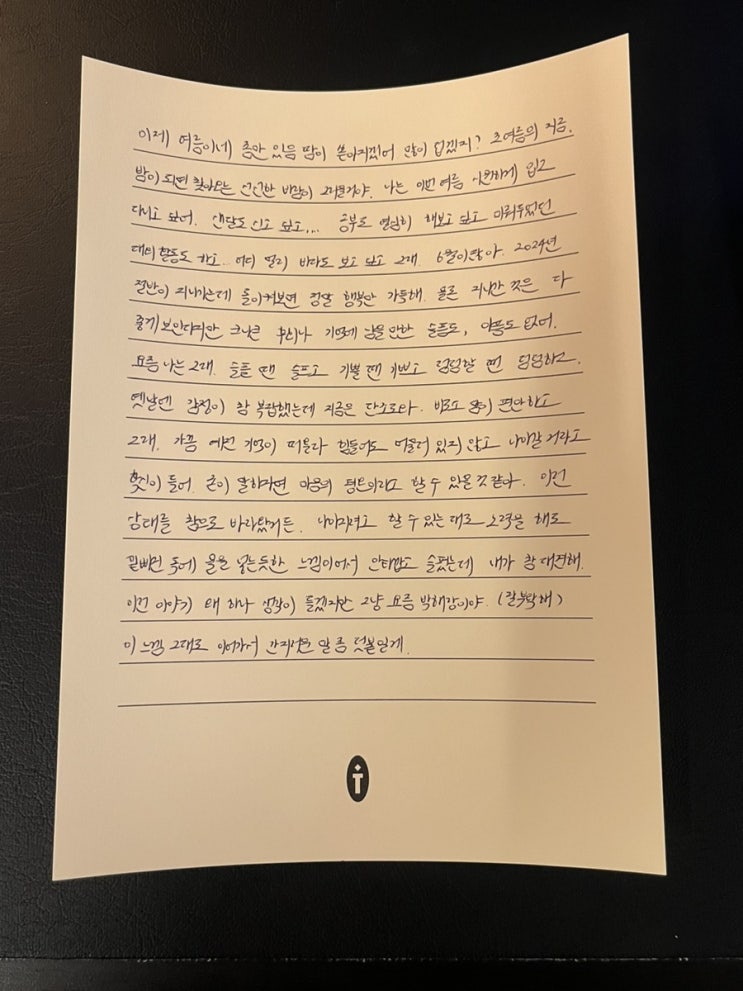 이제 여름이네 좀만 있음 땀이 쏟아지겠어 많이 덥겠지? 초여름의 지금.
밤이 되면 찾아오는 선선한 바람이 그리울거야. 나는 이번 여름 시원하게 입고
다니고 싶어. 샌달도 신고 싶고... 공부도 열심히 해보고 싶고 미뤄두었던
대외활동도 하고.. 어디 멀리 바다도 보고 싶고 그래. 6월이잖아. 2024년
절반이 지나가는데 돌이켜보면 정말 행복만 가득해. 물론 지나간 것은 다
좋게 보인다지만 크나큰 후회나 기억에 남을 만한 슬픔도, 아픔도 없어.
요즘 나는 그래. 슬플 땐 슬프고 기쁠 땐 기쁘고 덤덤할 땐 덤덤하고.
옛날엔 감정이 참 복잡했는데 지금은 단조로워. 비로소 맘이 편안하고
그래. 가끔 예전 기억이 떠올라 힘들어도 머물러 있지 않고 나아갈 거라고
확신이 들어. 흔히 말하자면 마음의 평온이라고 할 수 있을 것 같아. 이런
상태를 참으로 바라왔거든. 나아지려고 할 수 있는 대로 노력을 해도
밑빠진 독에 물을 붓는듯한 느낌이어서 안타깝고 슬펐는데 내가 참 대견해.
이런 이야기 왜 하나 생각이 들겠지만 그냥 요즘 박해강이야. (잘부탁해)
이 느낌 그대로 이어가서 간지러운 말 좀 덧붙일게.